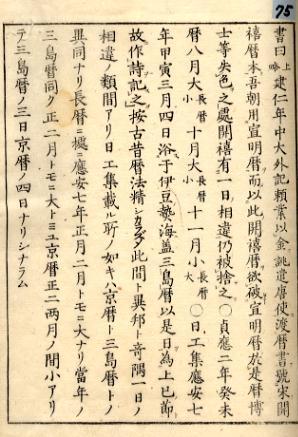 75
書曰上略建仁年中大外記頼業以金誂遣唐使渡暦書號宋開
禧暦本吾朝用宣明暦而以此開禧暦欲破宣明暦於是暦博
士等失色之處開禧有一日相違仍被捨之〇貞應二年癸未
暦八月大長暦小十月大長暦小十一月小長暦大〇日工集應安七
年甲寅三月四日浴于伊豆熱海盖三島暦以是日為上巳節
故作詩記之按古昔暦法精シカラズ此間ト異邦ト奇隅一日ノ
相違ノ類間アリ日工集載ル所ノ如キハ京暦ト三島暦トノ
異同ナリ長暦ニ據ニ應安七年正月二月トモニ大ナリ當年ノ
三島暦同ク正二月トモニ大トミユ京暦正二両月ノ間小アリ
テ三島暦ノ三日京暦ノ四日ナリシナラム